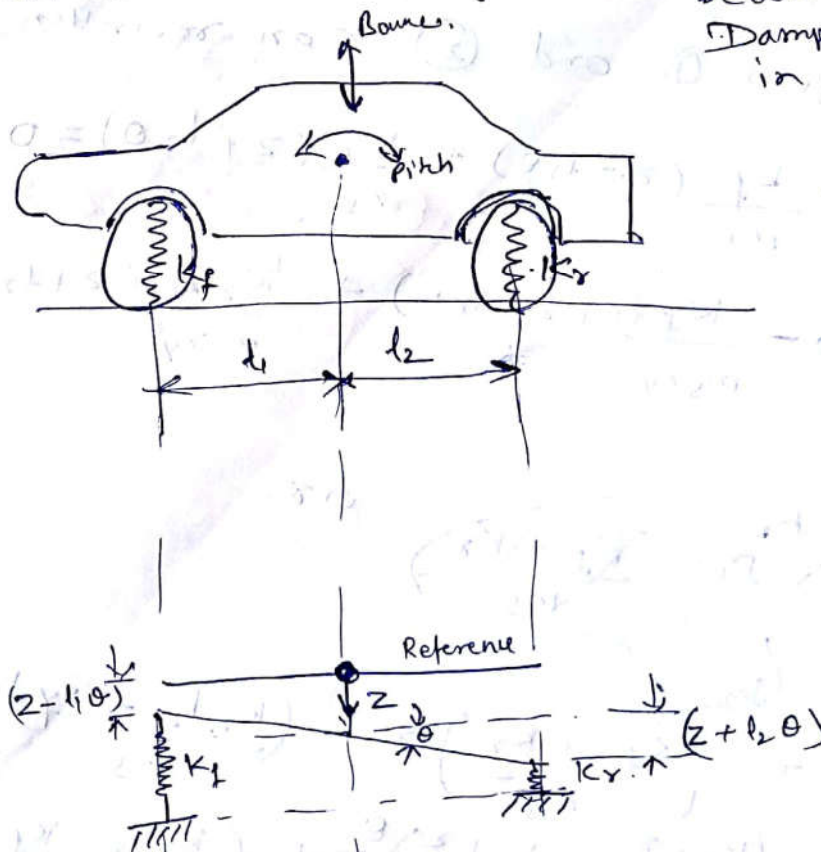 Bounce.
Damp
in
Pitch
Kf
Kr
l1
l2
Reference
(z - l1 θ)
z
θ
(z + l2 θ)
Kf
Kr.